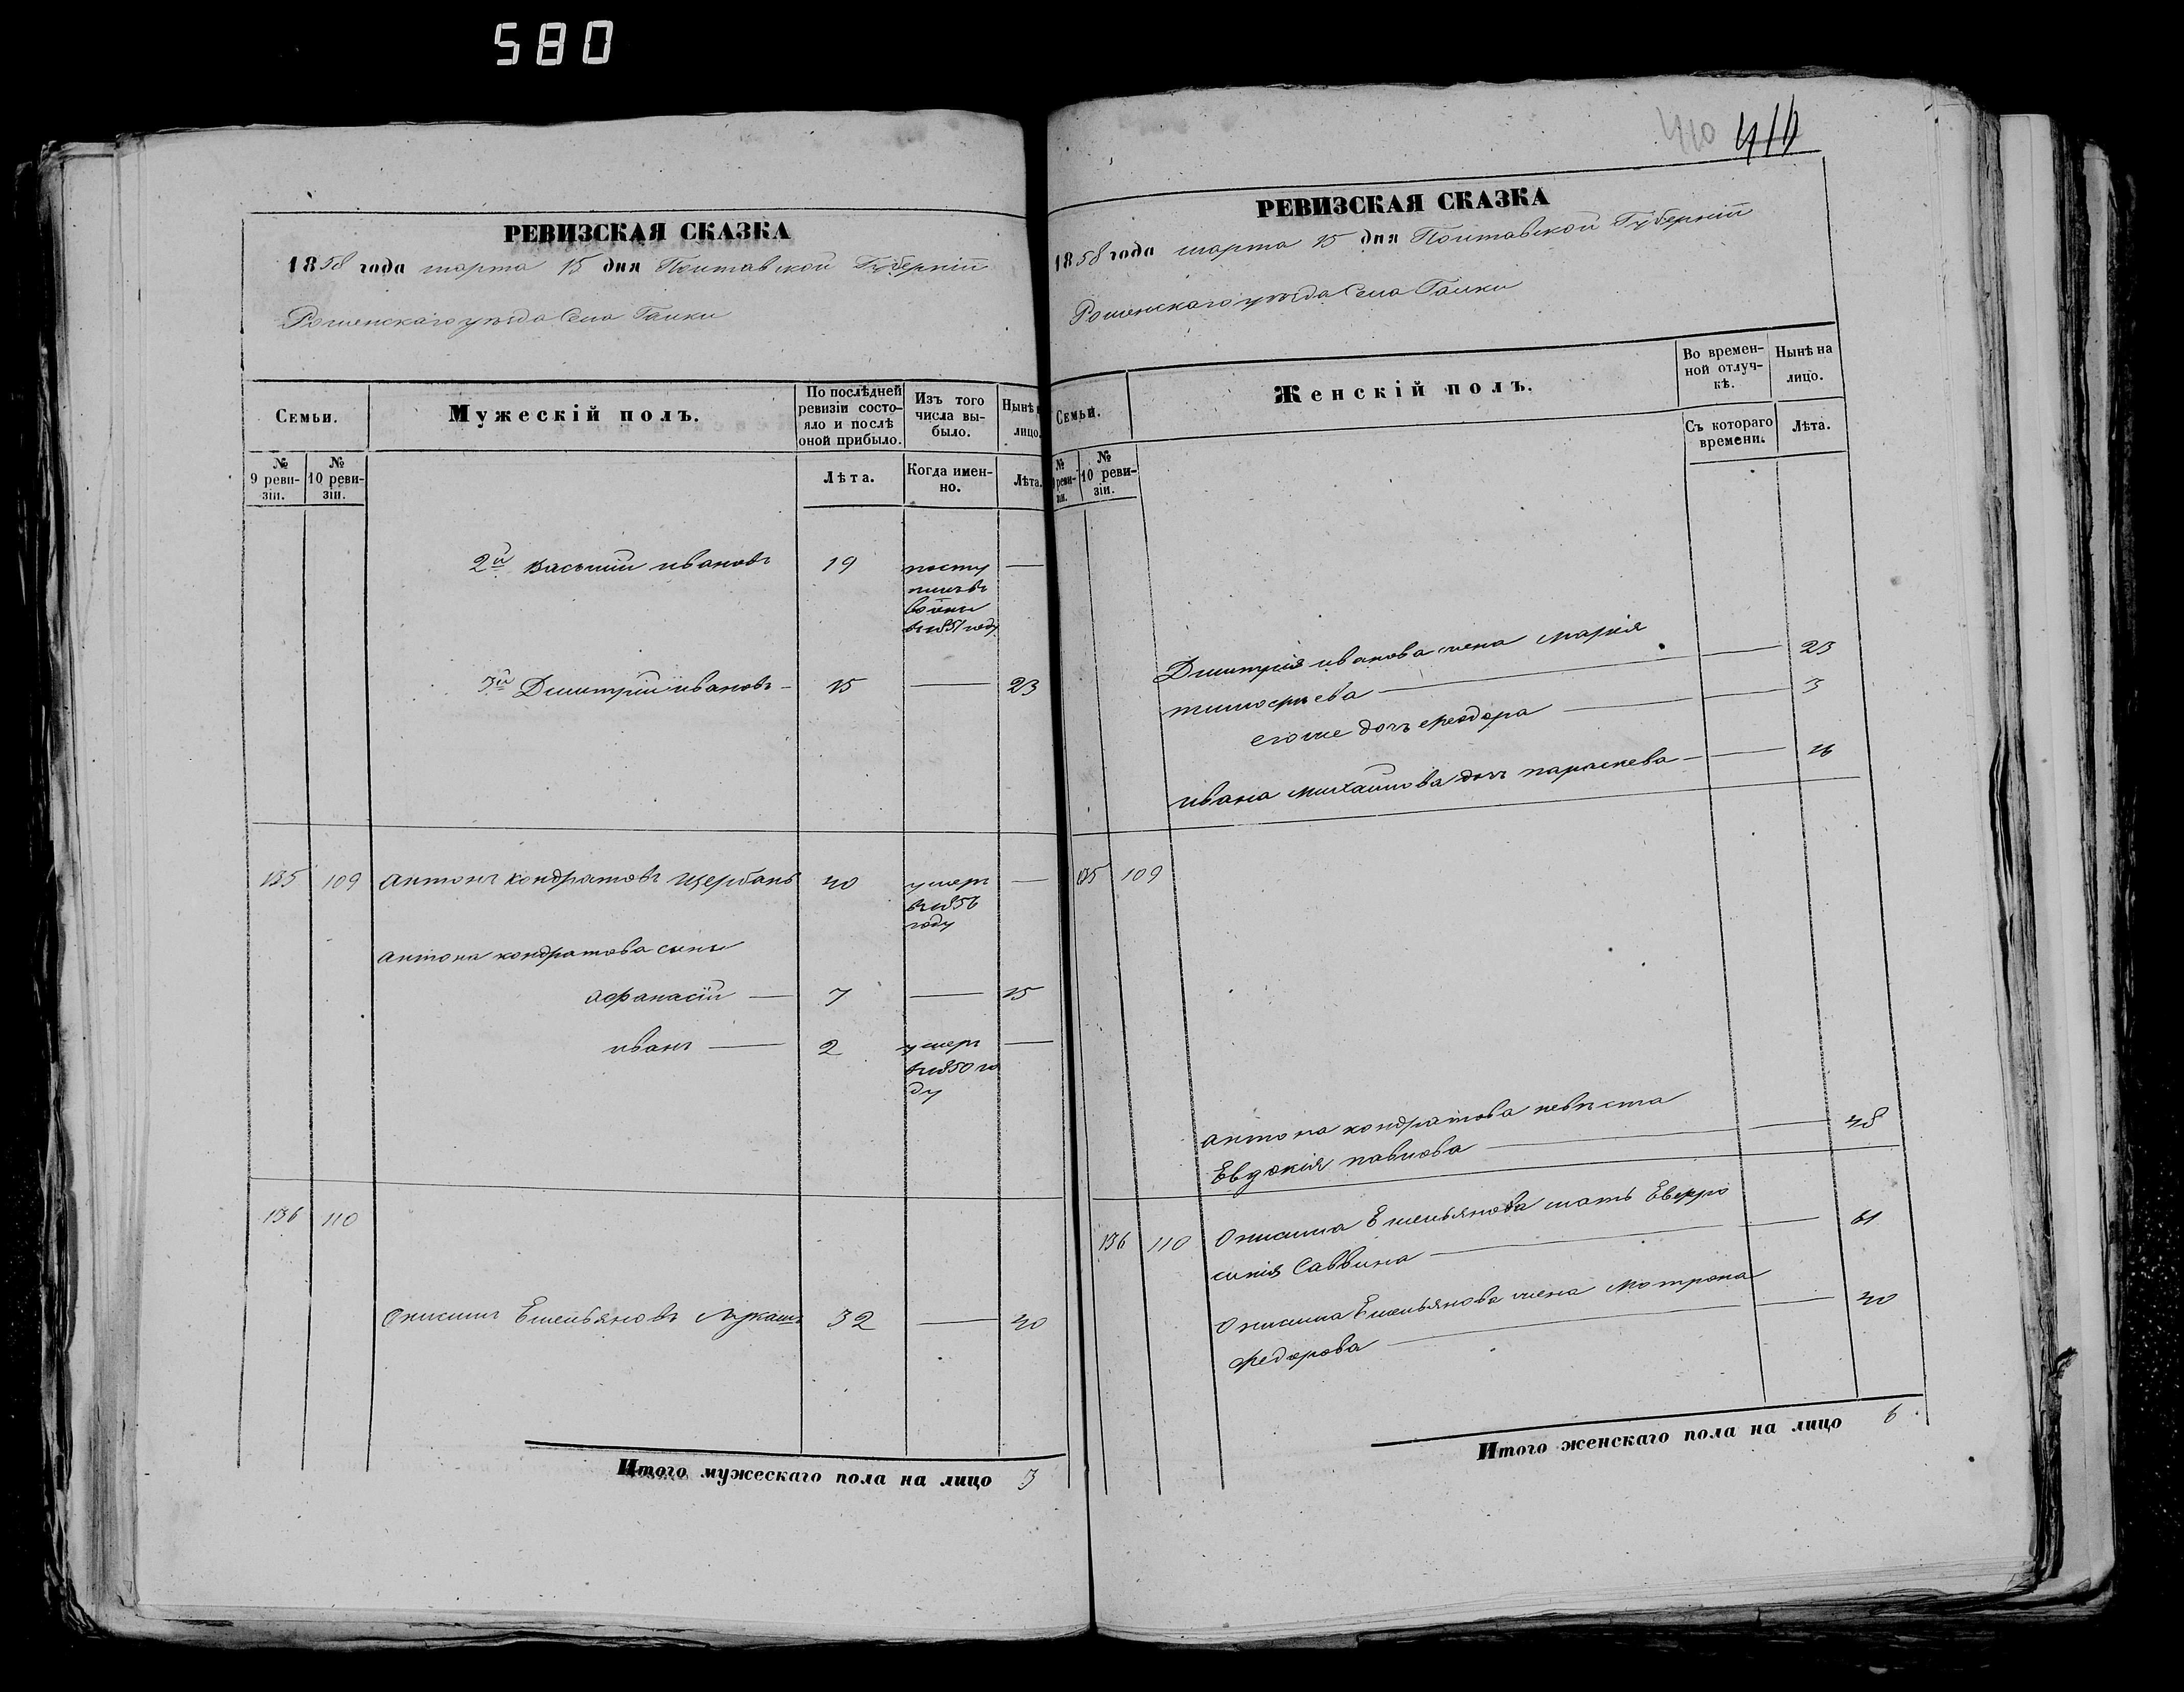 580
РЕВИЗСКАЯ СКАЗКА
1858 года марта 15 дня Полтавской Губерніи
Роменскаго уѣзда Села Галки
Семьи.
Мужескій полъ.
По послѣдней ревизіи состояло и послѣ оной прибыло.
Изъ того числа выбыло.
Нынѣ
лицо.
№ 9 ревизіи.
№ 10 ревизіи.
Лѣта.
Когда именно.
Лѣта.
2й Василій ивановъ 19 посту
пилъ въ
въ 1851 году
3й Дмитрій ивановъ 15 23
135 109 Антонъ кондратовъ Щербань 40 умеръ
въ 1856
году
Антона кондратова сыны
Афанасій 7 15
иванъ 2 умеръ
въ 1850 го
ду
136 110
Онисимъ Емельяновъ Лукашъ 32 40
Итого мужескаго пола на лицо 3
410 410
РЕВИЗСКАЯ СКАЗКА
1858 года марта 15 дня Полтавской Губерніи
Роменскаго уѣзда Села Галки
Семьи.
Женскій полъ.
Во временной отлучкѣ.
Нынѣ на лицо.
№ ревизіи.
№ 10 ревизіи.
Съ котораго времени.
Лѣта.
Дмитрія иванова жена Марія
тимофѣева 23
его же дочь федора 3
ивана михайлова дочь параскева 16
135 109
Антона кондратова невѣста
Евдокія павлова 48
136 110 Онисима Емельянова мать Евфро
синія Саввина 61
Онисима Емельянова жена Мотрона
федорова 40
Итого женскаго пола на лицо 6